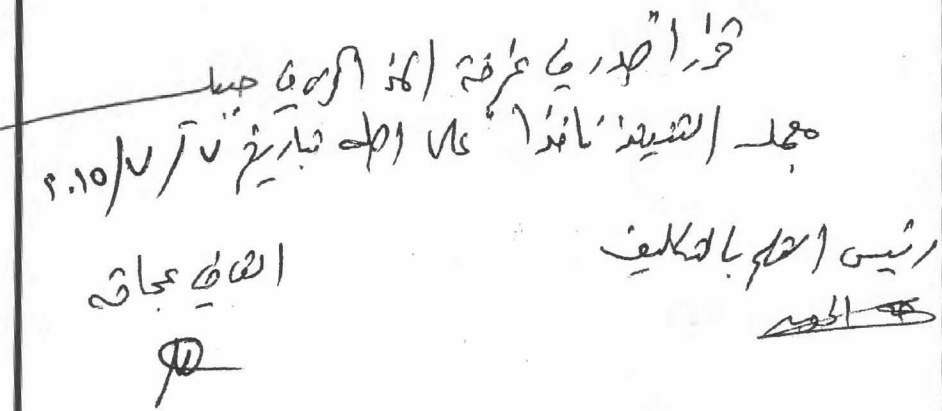 قراراً صدر في غرفة المذاكرة في جبيل
معجل التنفيذ نافذاً على أصله بتاريخ ٧/٧/٢٠١٥
رئيس القلم بالتكليف
القاضي عجاقة